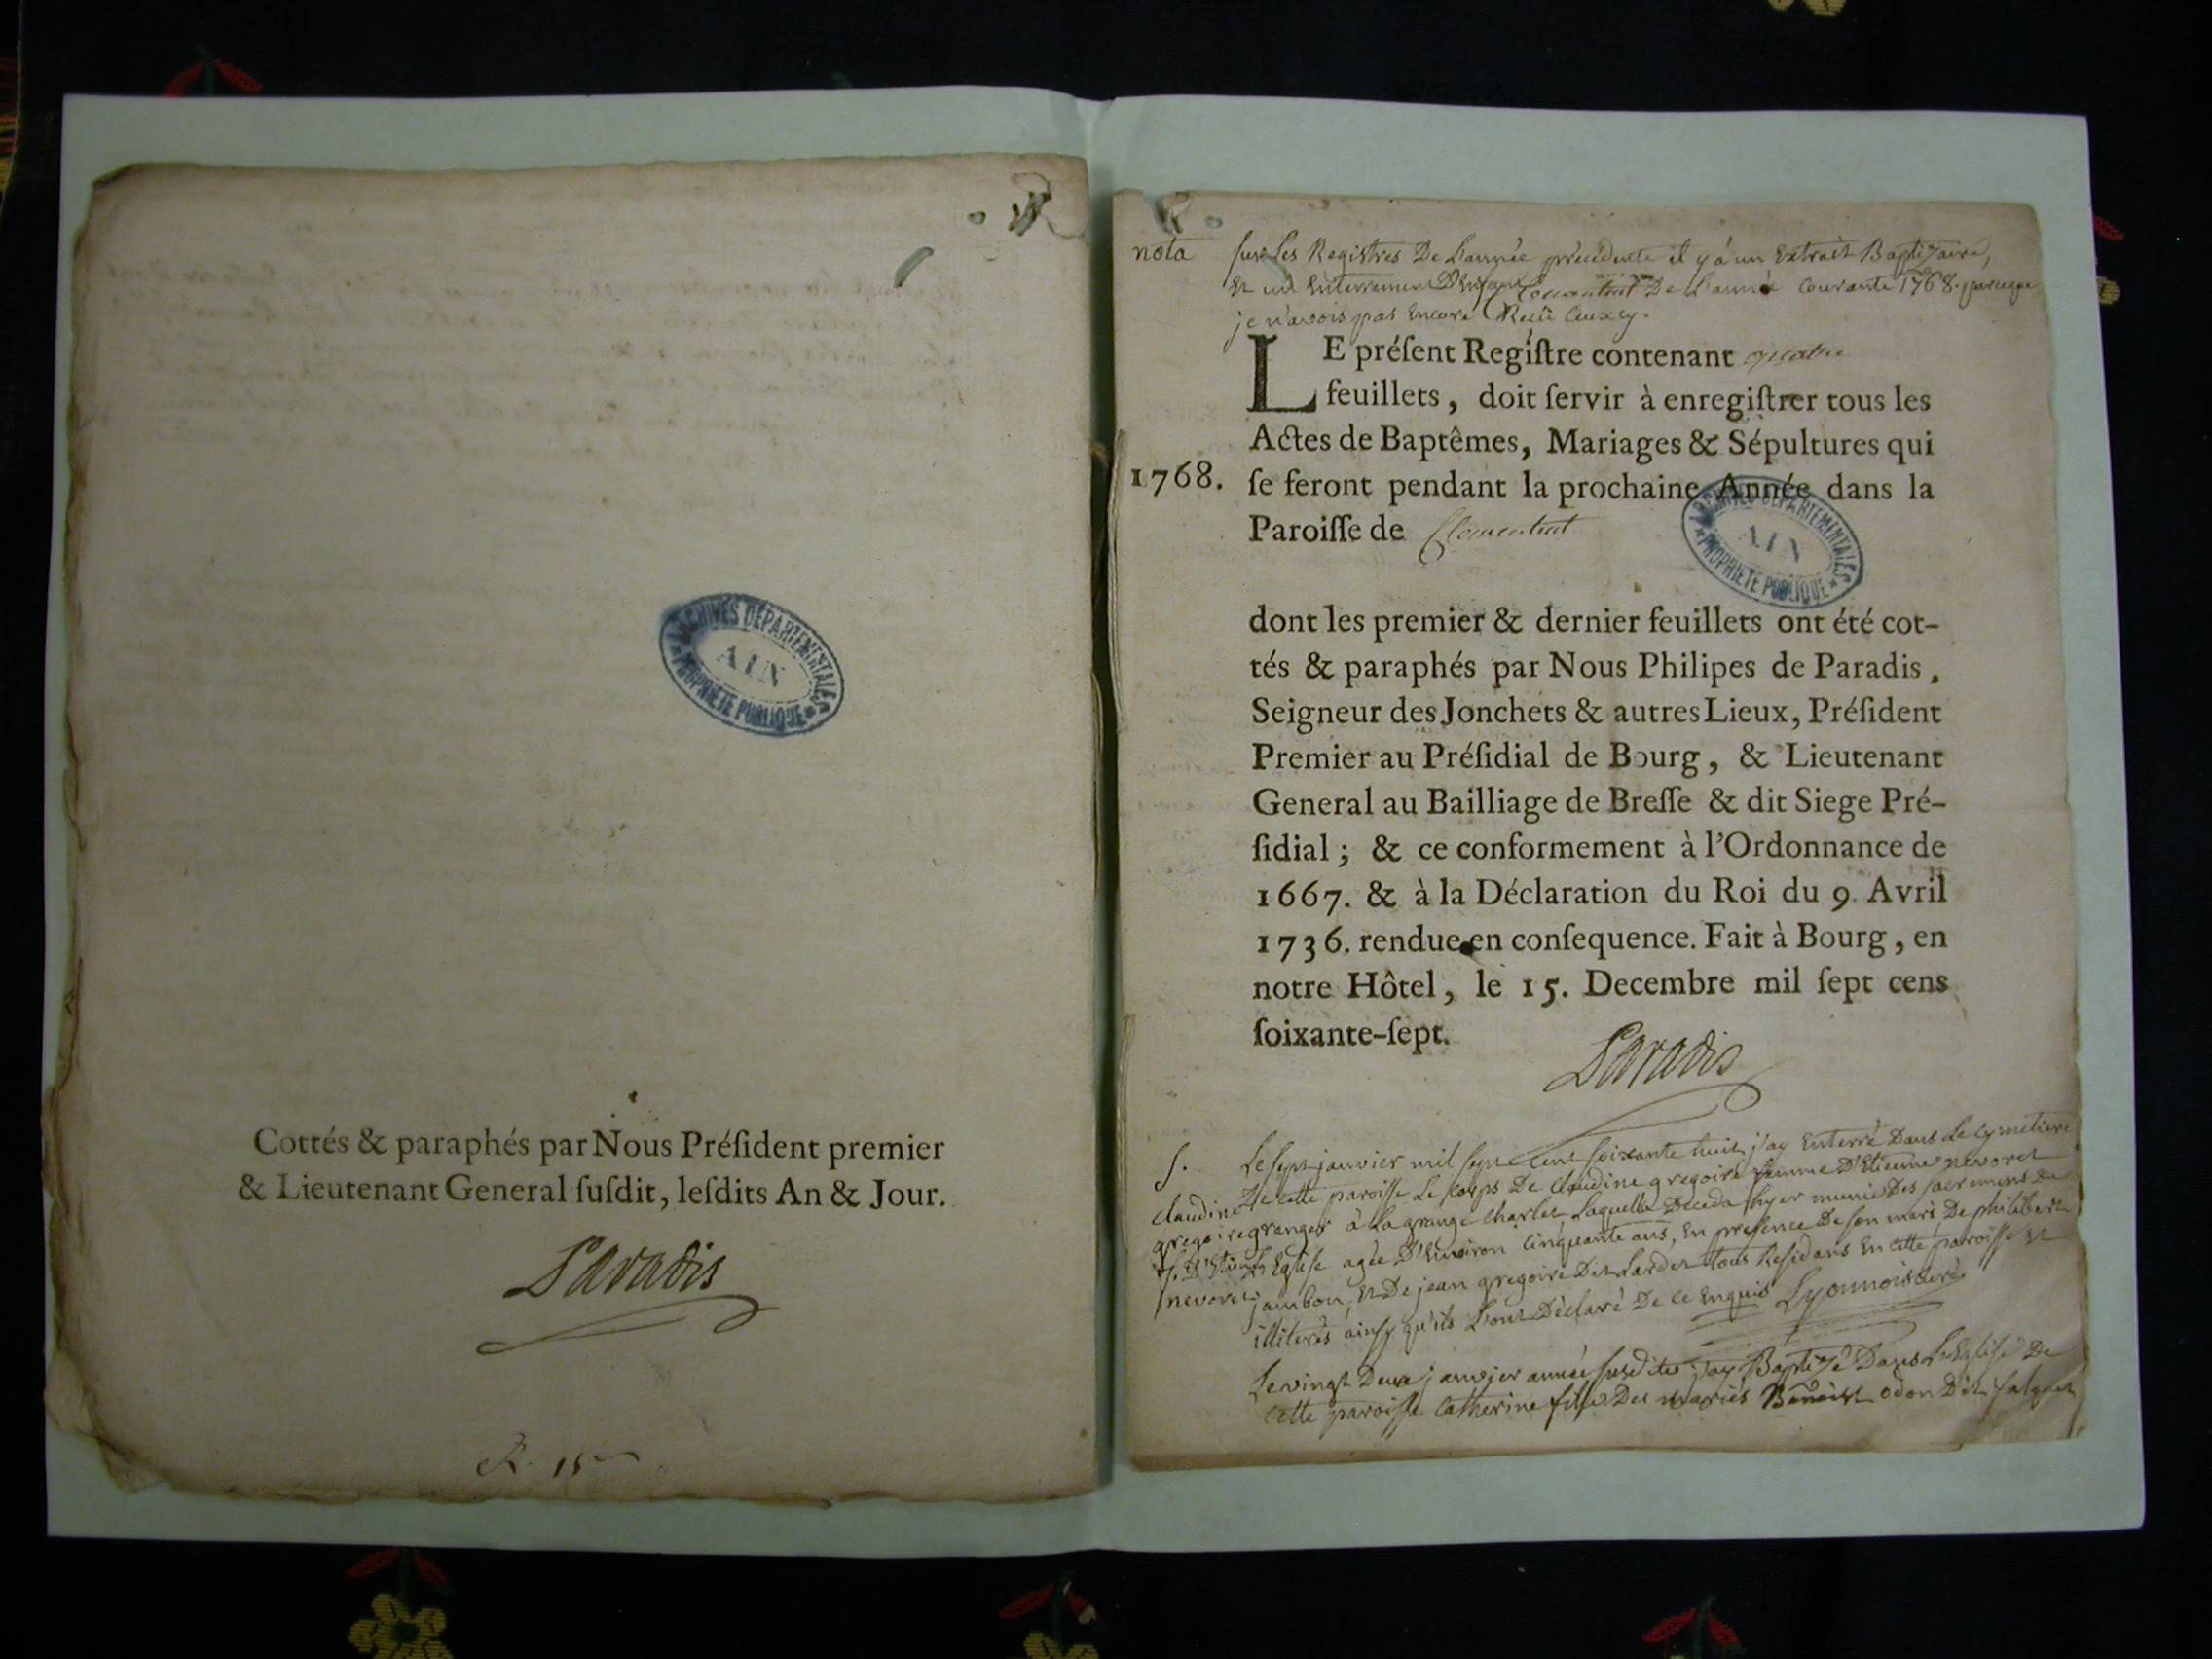 ARCHIVES DÉPARTEMENTALES
AIN
PROPRIÉTÉ PUBLIQUE
Cottés & paraphés par Nous Préſident premier
& Lieutenant General ſuſdit, leſdits An & Jour.
Paradis
R. 15
nota
sur Les Registres De L'année précédente il y á un Extrait Baptizaire,
Et un Enterrement D'Enfant De L'année courante 1768. parceque
je n'avois pas Encore Reçû Ceuxcy.
LE préſent Regiſtre contenant quatre
feuillets, doit ſervir à enregiſtrer tous les
Actes de Baptêmes, Mariages & Sépultures qui
1768. ſe feront pendant la prochaine Année dans la
Paroiſſe de Clementiat
ARCHIVES DÉPARTEMENTALES
AIN
PROPRIÉTÉ PUBLIQUE
dont les premier & dernier feuillets ont été cot-
tés & paraphés par Nous Philipes de Paradis,
Seigneur des Jonchets & autres Lieux, Préſident
Premier au Préſidial de Bourg, & Lieutenant
General au Bailliage de Breſſe & dit Siege Pré-
ſidial; & ce conformement à l'Ordonnance de
1667. & à la Déclaration du Roi du 9. Avril
1736. rendue en conſequence. Fait à Bourg, en
notre Hôtel, le 15. Decembre mil ſept cens
ſoixante-ſept.
Paradis
S.
claudine
gregoire
f. D'Etienne
nevoret
Le sept janvier mil sept cent soixante huit j'ay Enterré Dans Le cymetiere
De cette paroisse Le corps De claudine gregoire femme D'Etienne nevoret
granger à La grange Charlet Laquelle Deceda hyer munie Des sacremens De
L'Eglise agée D'Environ cinquante ans, En presence De son mari De philibert
jambon, Et De jean gregoire Dit Lardet tous Residans En cette paroisse Et
illiterés ainsy qu'ils L'ont Déclaré De ce Enquis Lyonnois curé
Le vingt Deux janvier année susdite j'ay Baptizé Dans L'Eglise De
cette paroisse Catherine fille Des mariés Benoist odon Dit